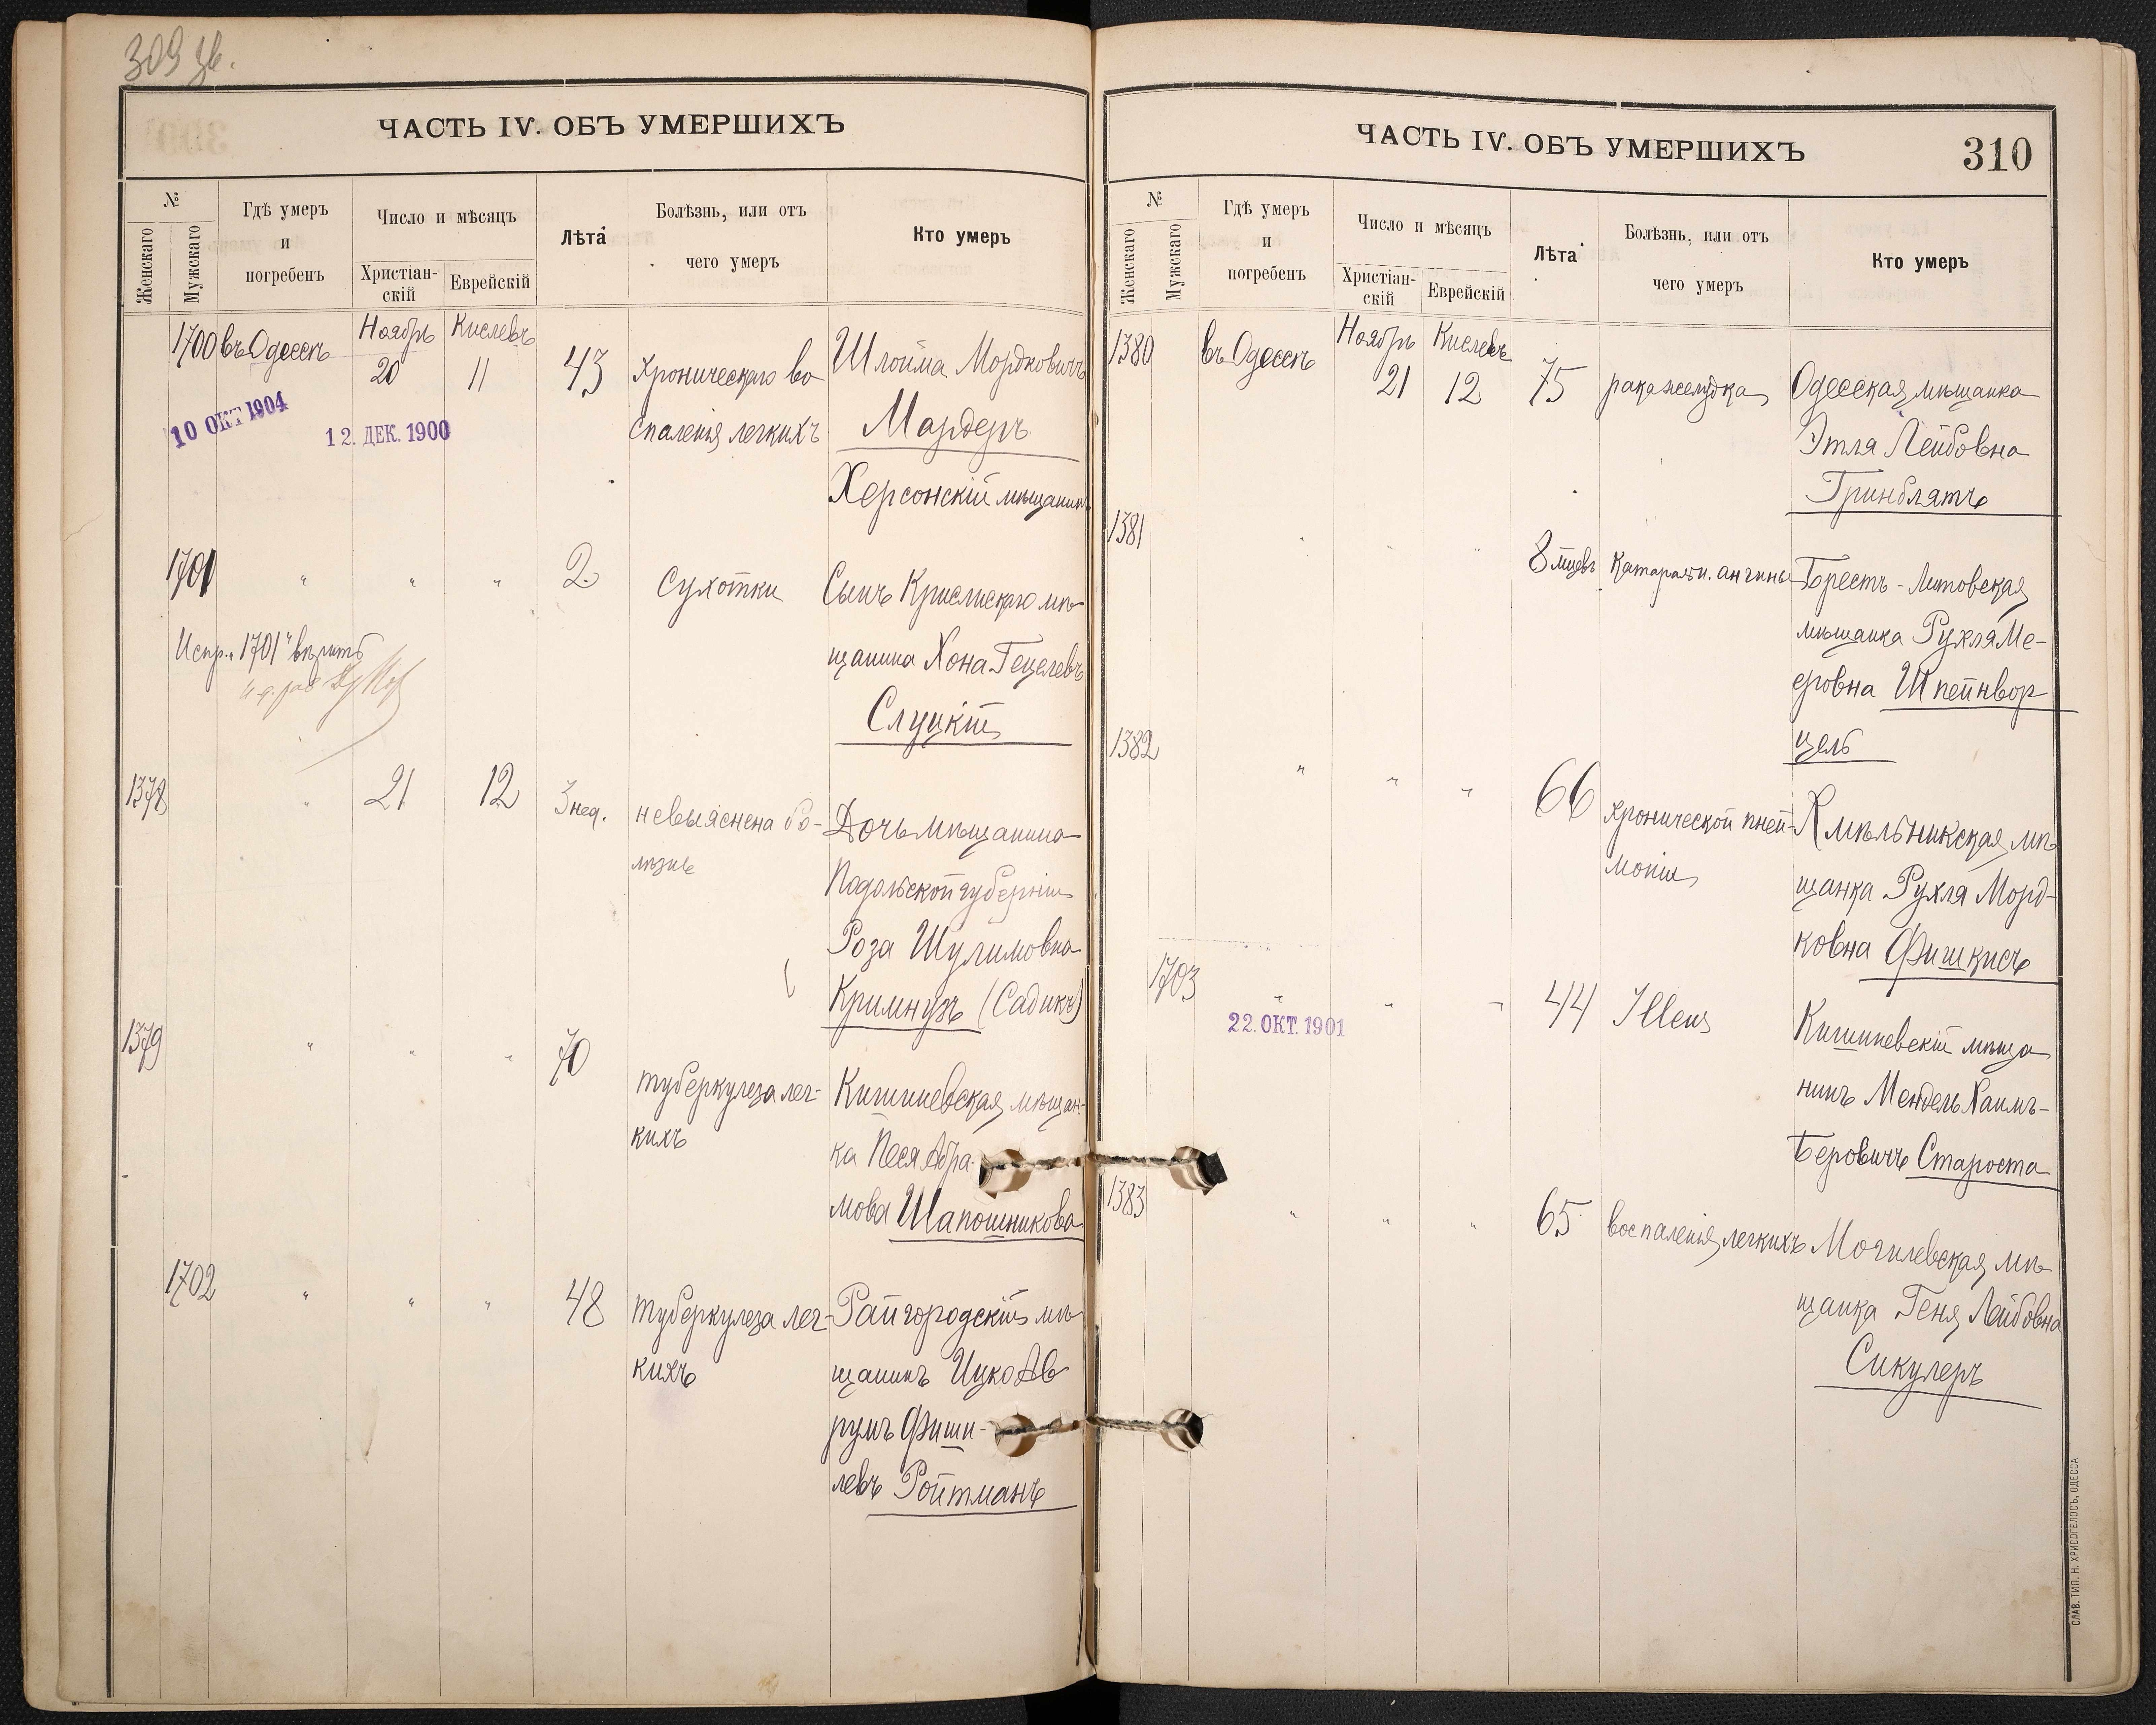 ЧАСТЬ IV. ОБЪ УМЕРШИХЪ
№
Женскаго
Мужскаго
Гдѣ умеръ
и
погребенъ
Число и мѣсяцъ
Христіан-
скій
Еврейскій
Лѣта
Болѣзнь, или отъ
чего умеръ
Кто умеръ
1700 въ Одессѣ Ноябрь 20 Кислевъ 11 43 Хроническаго во Шлойма Мордковичъ
спаленія легкихъ Мардеръ
10 ОКТ 1904
12. ДЕК. 1900
Херсонскій мѣщанинъ
1701 " " " 2 Сухотки Сынъ мѣ-
щанина Хона Гецелевъ
Слуцкій
Испр. "1701" вѣрить
1378 " 21 12 3 нед. невыяснена бо- Дочь мѣщанина
лѣзнь Подольской губерніи
Роза Шулимовна
Кримнузъ (Садикъ)
1379 " " " 70 туберкулеза лег- Кишиневская мѣщан-
кихъ ка Песя Абра-
мова Шапошникова
1702 " " " 48 туберкулеза лег- Райгородскій мѣ-
кихъ щанинъ Ицко Ав
румъ Фиши-
левъ Ройтманъ
ЧАСТЬ IV. ОБЪ УМЕРШИХЪ
310
№
Женскаго
Мужскаго
Гдѣ умеръ
и
погребенъ
Число и мѣсяцъ
Христіан-
скій
Еврейскій
Лѣта
Болѣзнь, или отъ
чего умеръ
Кто умеръ
1380 въ Одессѣ Ноябрь 21 Кислевъ 12 75 рака желудка Одесская мѣщанка
Этля Лейбовна
Гринблятъ
1381 " " " 8 мцевъ катаральн. ангины Брестъ-Литовская
мѣщанка Рухля Ме-
еровна Шпейнвор
цель
1382 " " " 66 хронической пней- Хмѣльникская мѣ
моніи щанка Рухля Морд-
ковна Фишкисъ
1703 " " " 44 Illeus Кишиневскій мѣща
22. ОКТ. 1901
нинъ Мендель Хаимъ-
Беровичъ Староста
1383 " " " 65 воспаленія легкихъ Могилевская мѣ
щанка Геня Лейбовна
Сикулеръ
СЛАВ. ТИП. Н. ХРИСОГЕЛОСЪ, ОДЕССА